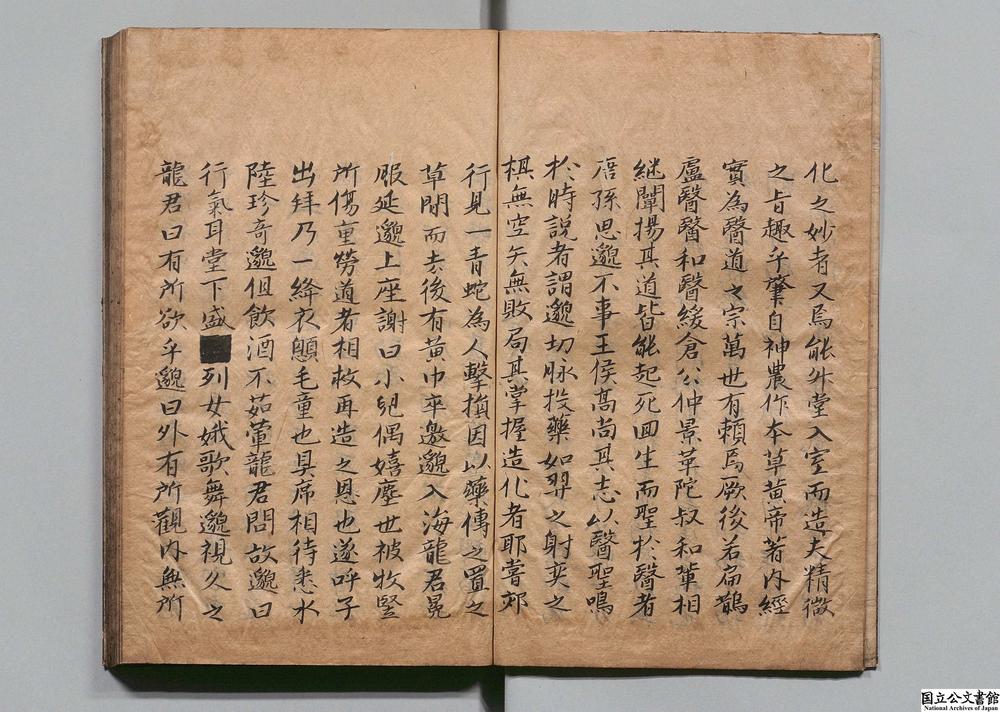 化之妙者又焉能外堂入室而造夫精微
之旨趣乎肇自神農作本草黄帝著内經
實為醫道之宗萬世有賴焉厥後若扁鵲
盧醫醫和醫緩倉公仲景華陀叔和軰相
継闡揚其道皆能起死回生而聖於醫者
唐孫思邈不事王侯髙尚其志以醫聖鳴
於時説者謂邈切脉投藥如羿之射奕之
棋無空矢無敗局其掌握造化者耶嘗郊
行見一青蛇為人擊損因以藥傳之置之
草間而去後有黄巾卒邀邈入海龍君冕
服延邈上座謝曰小兒偶嬉塵世被牧竪
所傷重勞道者相救再造之恩也遂呼子
出拜乃一絳衣顖毛童也具席相待悉水
陸珍奇邈但飲酒不茹葷龍君問故邈曰
行氣耳堂下盛列女娥歌舞邈視久之
龍君曰有所欲乎邈曰外有所觀内無所
国立公文書館
National Archives of Japan